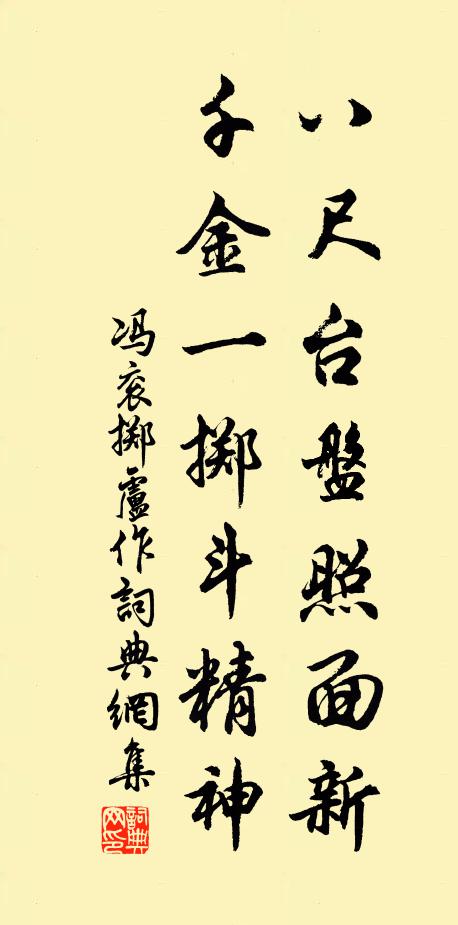 八尺台盤照面新
千金一掷斗精神
冯衮掷盧作詞典網集
詞典网印